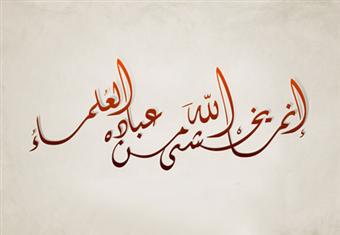 إنما يخشى اللهَ من عباده العُلماءُ